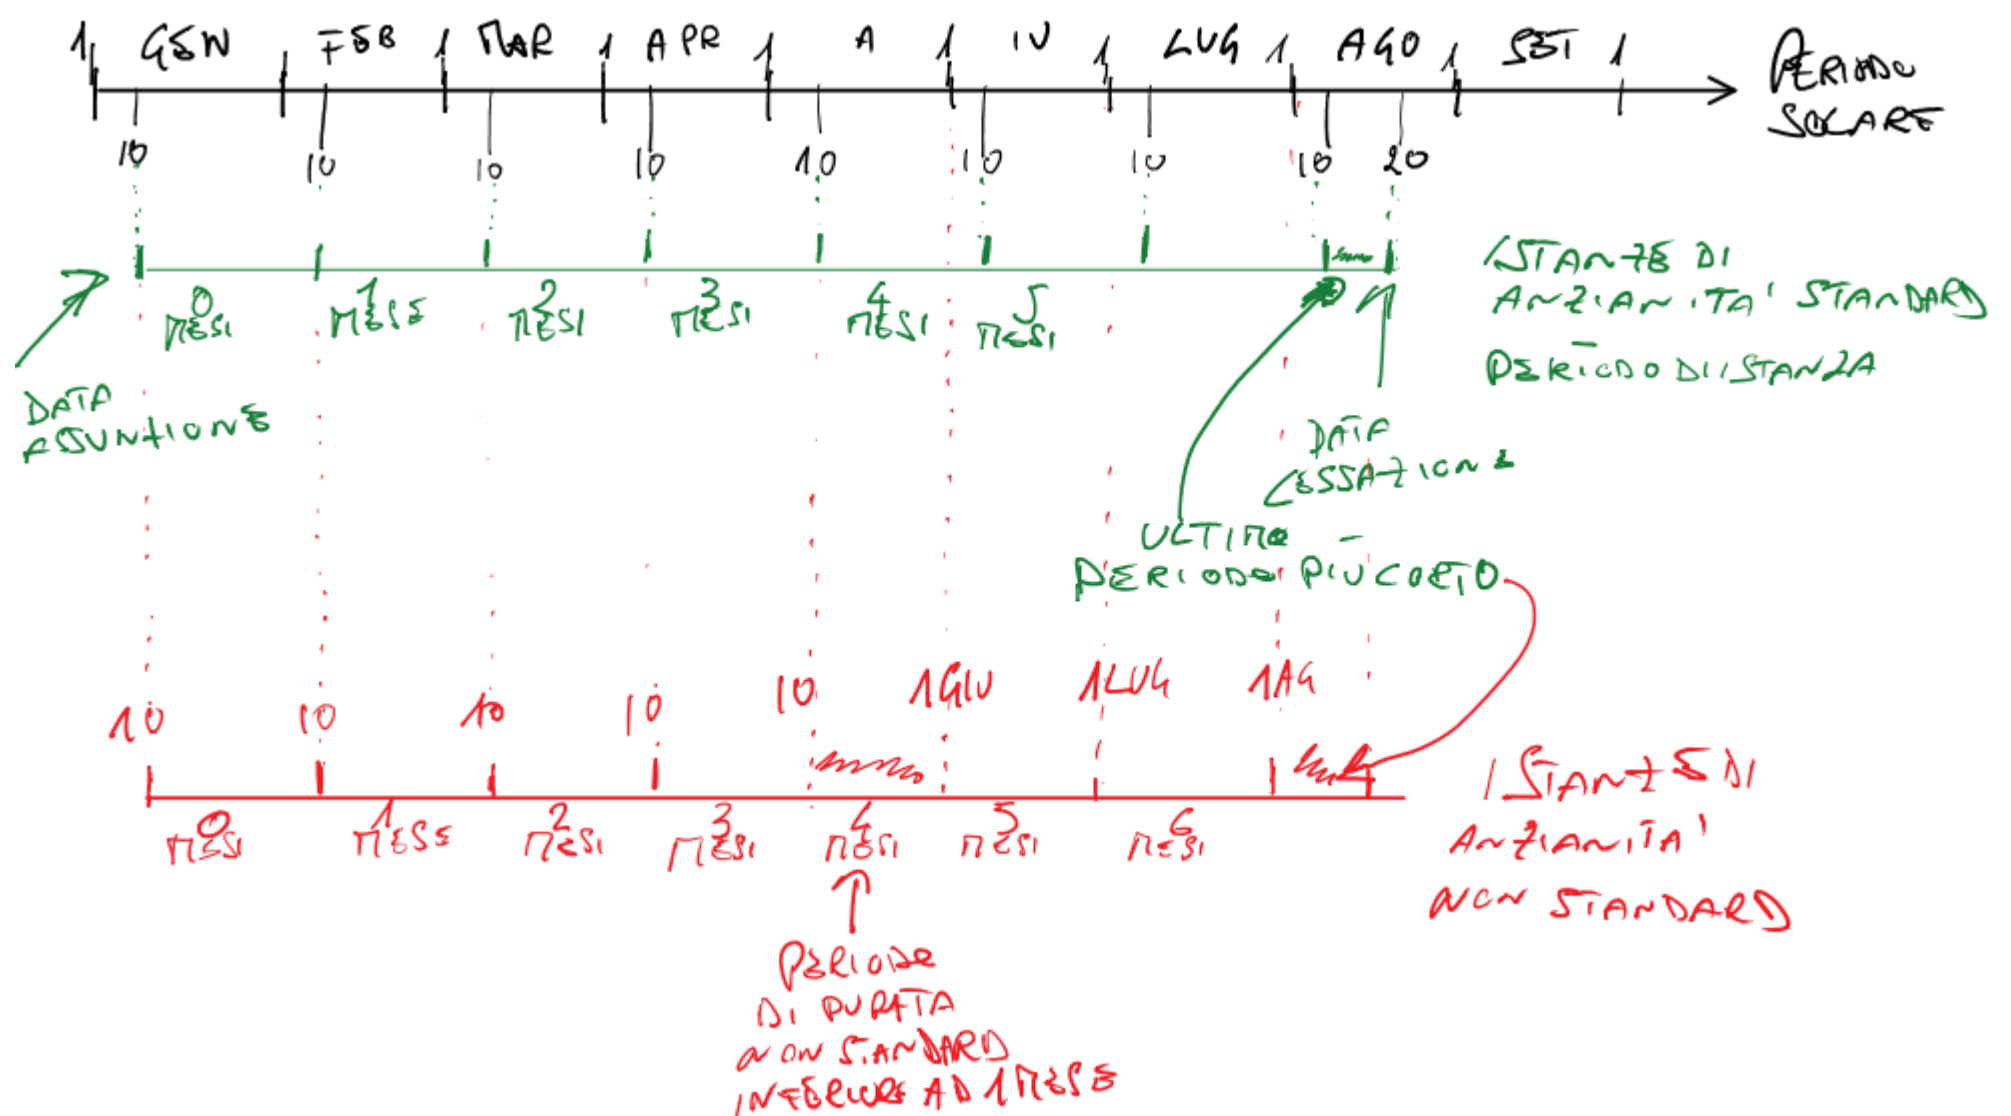 1 GEN 1 FEB 1 MAR 1 APR 1 A 1 IU 1 LUG 1 AGO 1 SET 1
PERIODO
SOLARE
10 10 10 10 10 10 10 10 20
ISTANZE DI
ANZIANITA' STANDARD
PERIODO DI ISTANZA
0
MESI
1
MESE
2
MESI
3
MESI
4
MESI
5
MESI
DATA
ASSUNZIONE
DATA
CESSAZIONE
ULTIMO
PERIODO PIÙ CORTO
10 10 10 10 10 1GIU 1LUG 1AG
0
MESI
1
MESE
2
MESI
3
MESI
4
MESI
5
MESI
6
MESI
ISTANZE DI
ANZIANITA'
NON STANDARD
PERIODO
DI DURATA
NON STANDARD
INFERIORE AD 1 MESE